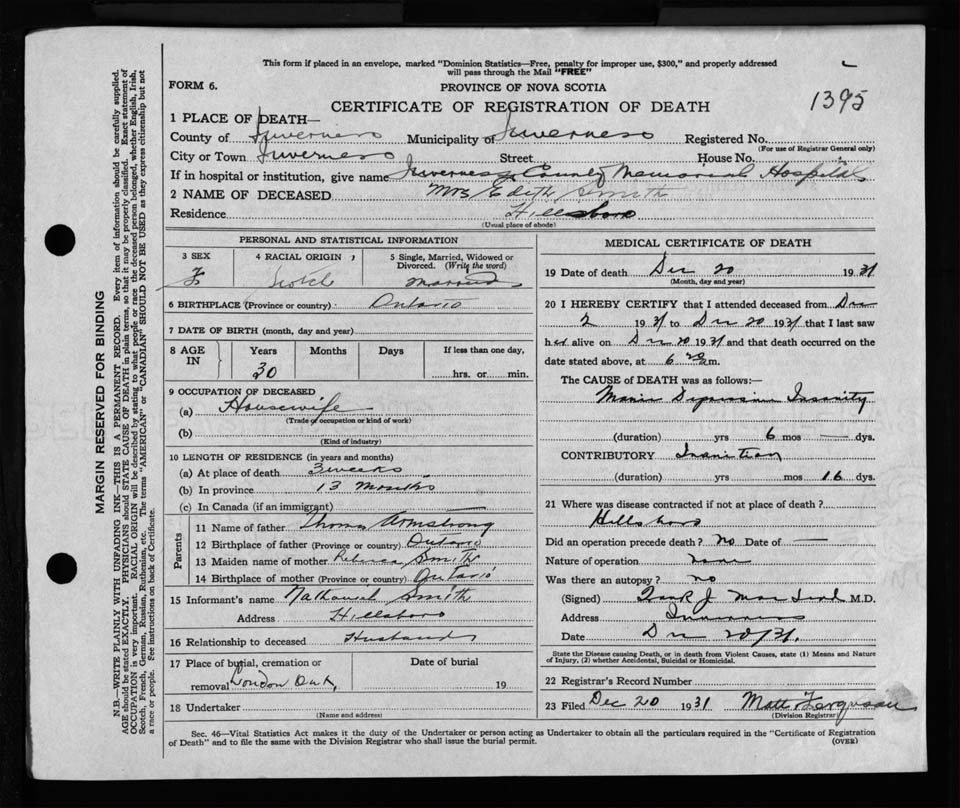 This form if placed in an envelope, marked "Dominion Statistics—Free, penalty for improper use, $300," and properly addressed
will pass through the Mail "FREE"
FORM 6.
PROVINCE OF NOVA SCOTIA
1395
CERTIFICATE OF REGISTRATION OF DEATH
1 PLACE OF DEATH—
County of Inverness Municipality of Inverness Registered No.
(For use of Registrar General only)
City or Town Inverness Street House No.
If in hospital or institution, give name Inverness County Memorial Hospital
2 NAME OF DECEASED Mrs Edith Smith
Residence Hillsboro
(Usual place of abode)
PERSONAL AND STATISTICAL INFORMATION
3 SEX
F
4 RACIAL ORIGIN
Scotch
5 Single, Married, Widowed or Divorced. (Write the word)
Married
6 BIRTHPLACE (Province or country) Ontario
7 DATE OF BIRTH (month, day and year)
8 AGE IN
Years Months Days If less than one day,
30
hrs. or min.
9 OCCUPATION OF DECEASED
(a) Housewife
(Trade or occupation or kind of work)
(b)
(Kind of industry)
10 LENGTH OF RESIDENCE (in years and months)
(a) At place of death 3 weeks
(b) In province 13 Months
(c) In Canada (if an immigrant)
Parents
11 Name of father Thomas Armstrong
12 Birthplace of father (Province or country) Ontario
13 Maiden name of mother Rebecca Smith
14 Birthplace of mother (Province or country) Ontario
15 Informant's name Nathaniel Smith
Address Hillsboro
16 Relationship to deceased Husband
17 Place of burial, cremation or Date of burial
removal London Ont, 19
18 Undertaker
(Name and address)
MEDICAL CERTIFICATE OF DEATH
19 Date of death Dec 20 1931
(Month, day and year)
20 I HEREBY CERTIFY that I attended deceased from Dec
2 1931 to Dec 20 1931 that I last saw
her alive on Dec 20 1931 and that death occurred on the
date stated above, at 6 m.
The CAUSE of DEATH was as follows:—
Manic Depressive Insanity
(duration) yrs 6 mos — dys.
CONTRIBUTORY Inanition
(duration) yrs mos 16 dys.
21 Where was disease contracted if not at place of death?
Hillsboro
Did an operation precede death? No Date of —
Nature of operation none
Was there an autopsy? no
(Signed) M.D.
Address Inverness
Date Dec 20/31.
State the Disease causing Death, or in death from Violent Causes, state (1) Means and Nature
of Injury, (2) whether Accidental, Suicidal or Homicidal.
22 Registrar's Record Number
23 Filed Dec 20 1931 Matt Ferguson
(Division Registrar)
Sec. 46—Vital Statistics Act makes it the duty of the Undertaker or person acting as Undertaker to obtain all the particulars required in the "Certificate of Registration
of Death" and to file the same with the Division Registrar who shall issue the burial permit.
(OVER)
MARGIN RESERVED FOR BINDING
N.B.—WRITE PLAINLY WITH UNFADING INK—THIS IS A PERMANENT RECORD. Every item of information should be carefully supplied.
AGE should be stated EXACTLY. PHYSICIANS should STATE CAUSE OF DEATH in plain terms, so that it may be properly classified. Exact statement of
OCCUPATION is very important. RACIAL ORIGIN will be described by stating to what people or race the deceased person belonged, whether English, Irish,
Scotch, French, German, Russian, Ruthenian, etc. The terms "AMERICAN" or "CANADIAN" SHOULD NOT BE USED as they express citizenship but not
a race or people. See instructions on back of Certificate.